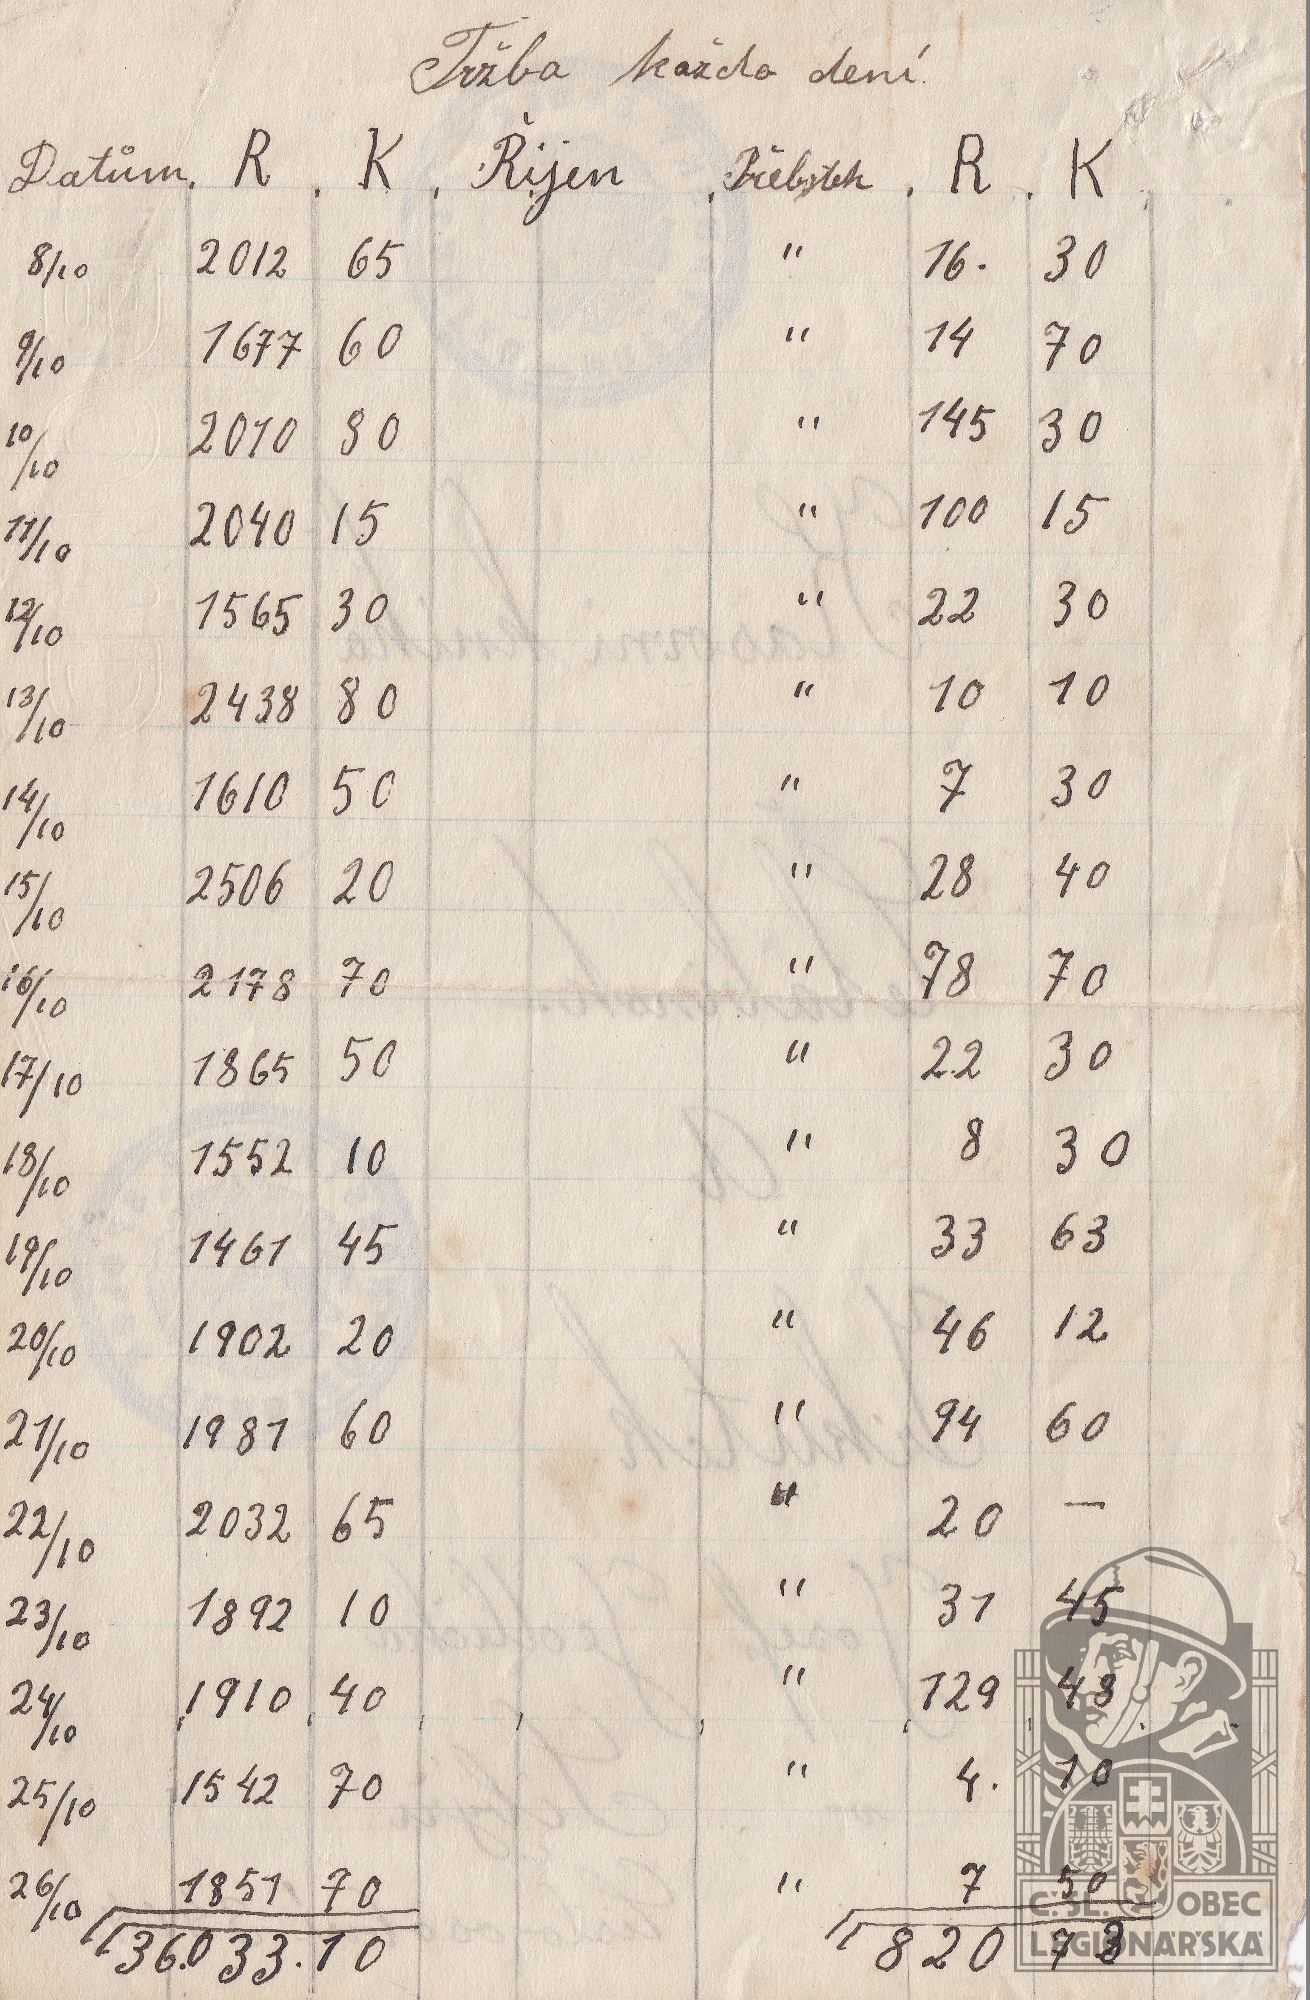 Tržba každo dení
Datům. R. K. Říjen. Přebytek. R. K.
8/10 2012 65 " 16. 30
9/10 1677 60 " 14 70
10/10 2010 80 " 145 30
11/10 2040 15 " 100 15
12/10 1565 30 " 22 30
13/10 2438 80 " 10 10
14/10 1610 50 " 7 30
15/10 2506 20 " 28 40
16/10 2178 70 " 78 70
17/10 1865 50 " 22 30
18/10 1552 10 " 8 30
19/10 1461 45 " 33 63
20/10 1902 20 " 46 12
21/10 1981 60 " 94 60
22/10 2032 65 " 20 —
23/10 1892 10 " 31 45
24/10 1910 40 " 129 48
25/10 1542 70 " 4. 10
26/10 1851 70 " 7 50
36.033.10 820 73
Č. SL. OBEC
LEGIONÁŘSKÁ